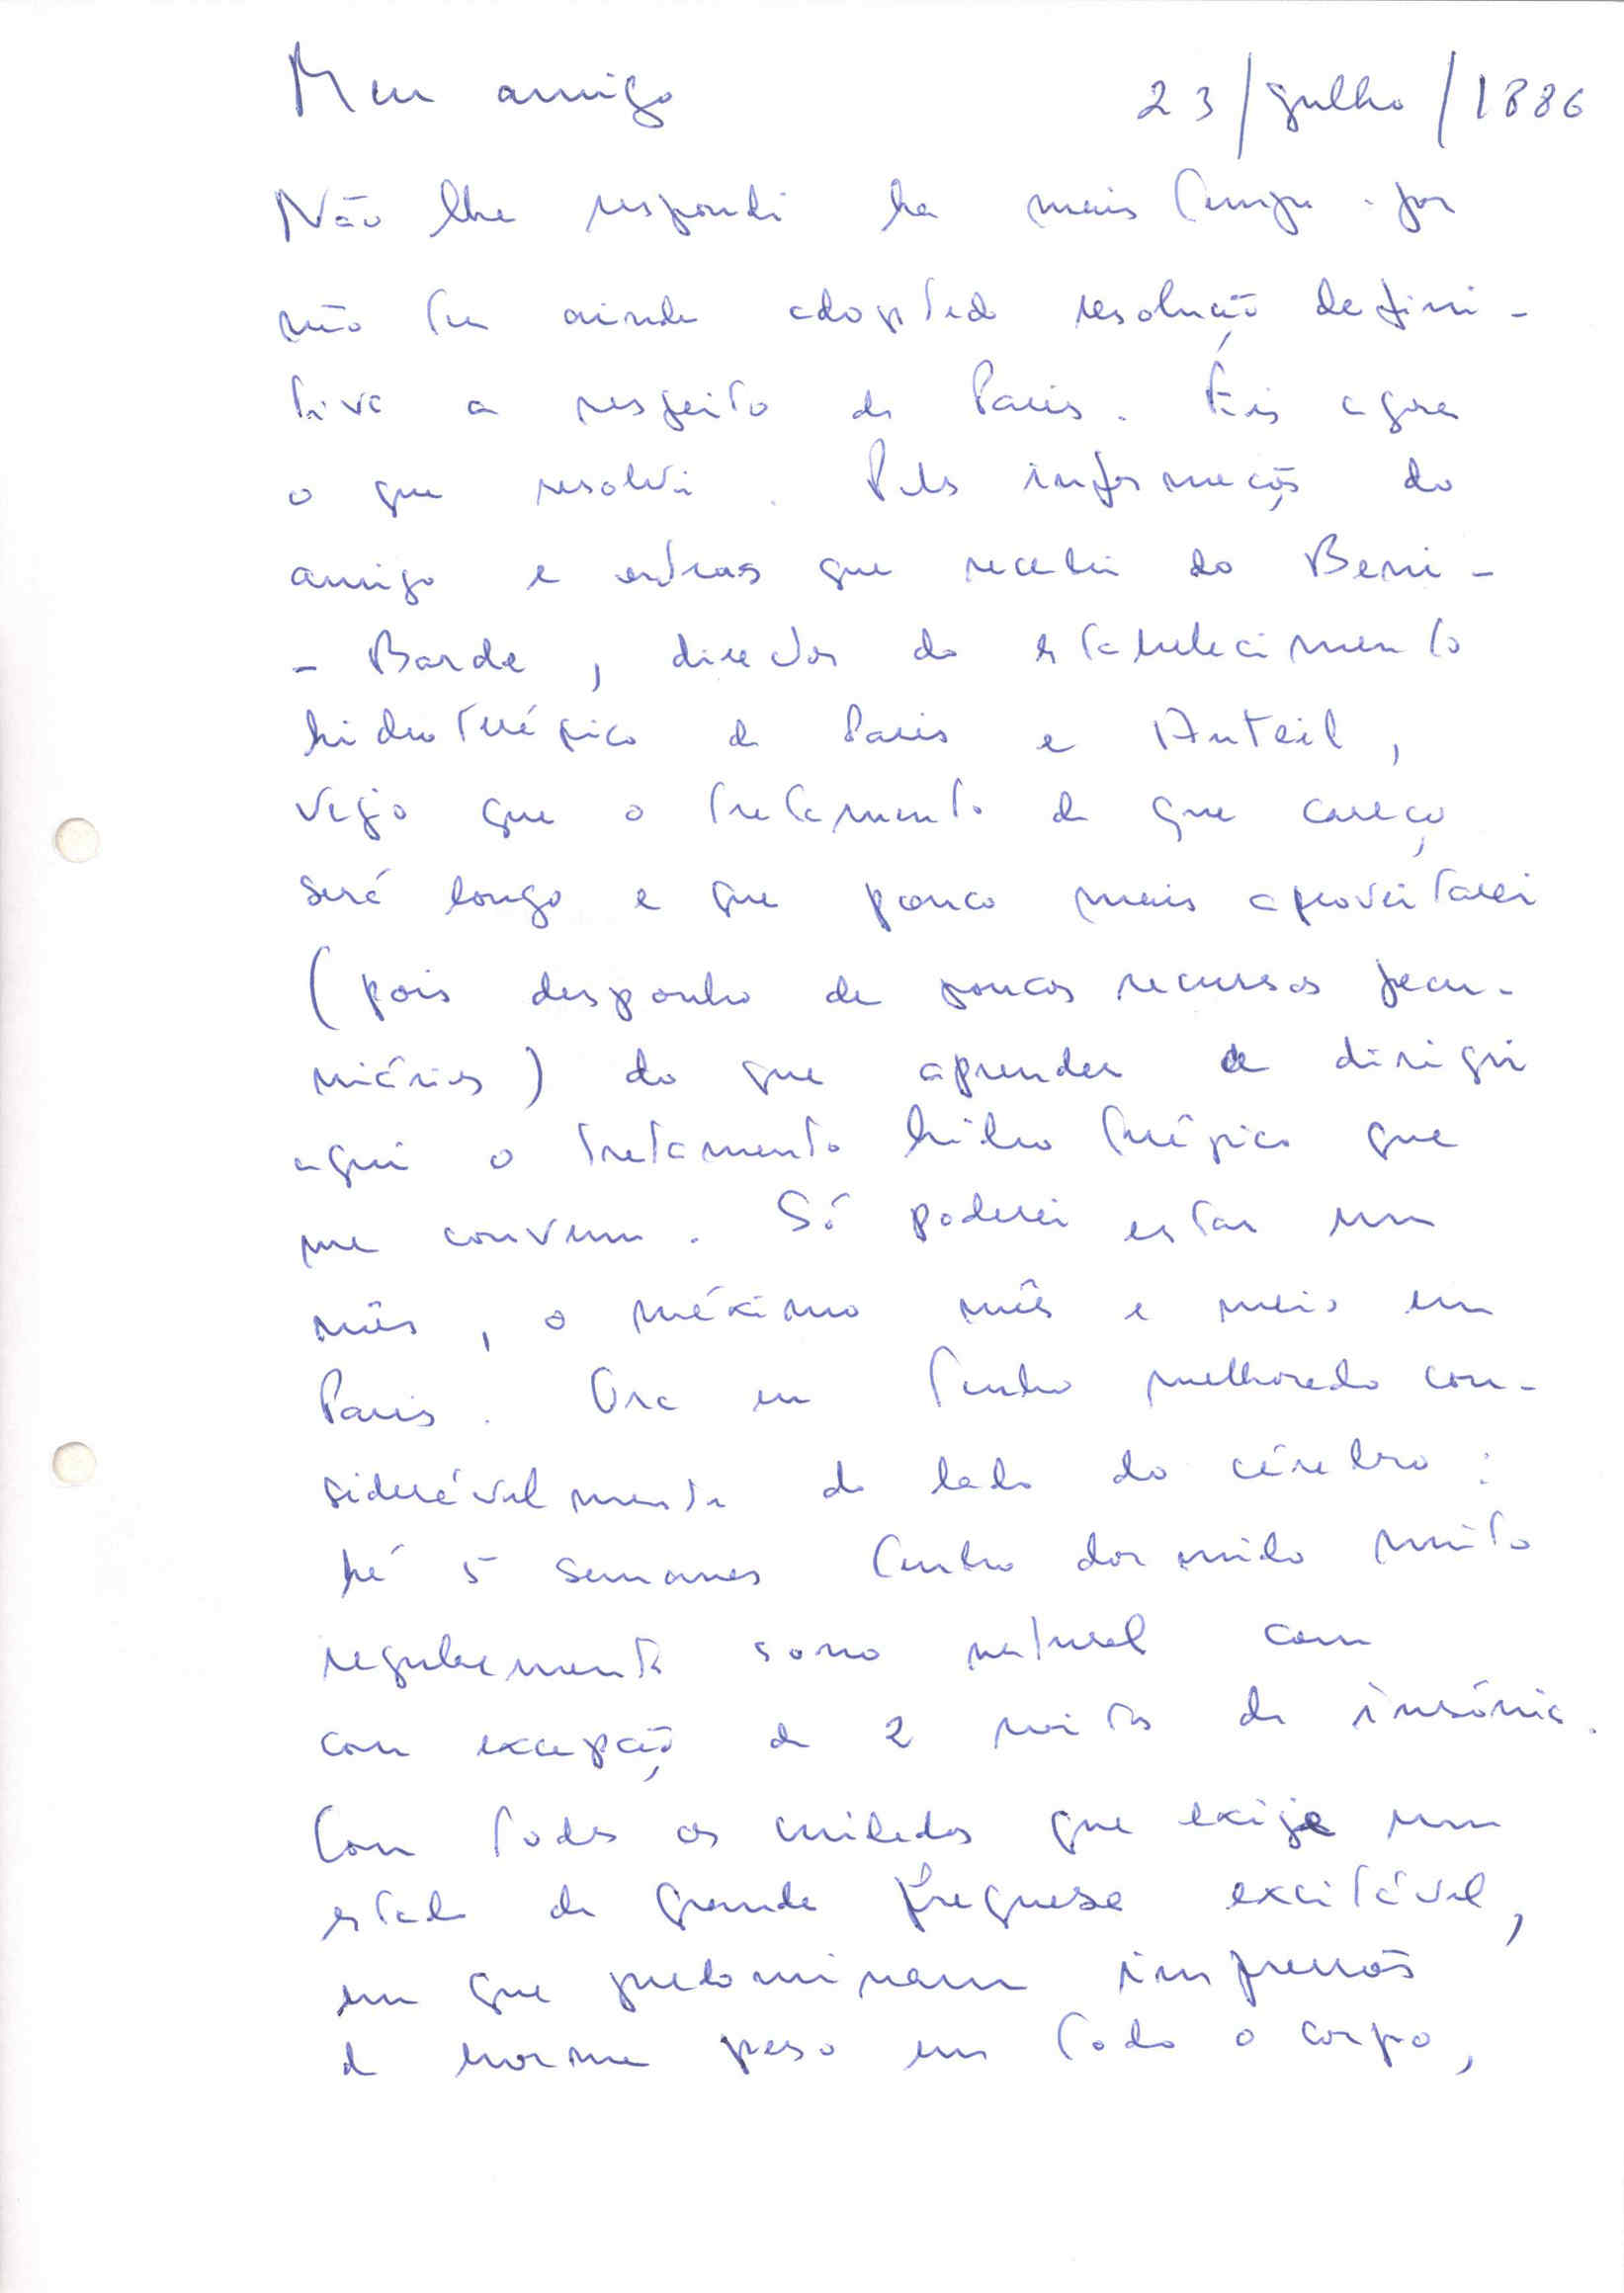 Meu amigo 23/julho/1886
Não lhe respondi ha mais tempo por
não ter ainda adoptado resolução defini-
tiva a respeito de Paris. Eis agora
o que resolvi. Pelas informações do
amigo e outras que recebi do Beni-
- Barde, director do estabelecimento
hidroterápico de Paris e Auteil,
vejo que o tratamento de que careço
será longo e que pouco mais aproveitarei
(pois desponho de poucos recursos pecu-
niários) do que aprender a dirigir
aqui o tratamento hidroterápico que
me convem. Só poderei estar um
mês, o máximo mês e meio em
Paris. Ora eu tenho melhorado con-
siderávelmente do lado do cérebro:
há 5 semanas tenho dormido muito
regularmente sono natural com
com excepção de 2 noites de insónia.
Com todos os cuidados que exige um
estado de grande fraqueza excitável,
em que predominam impressões
de enorme peso em todo o corpo,